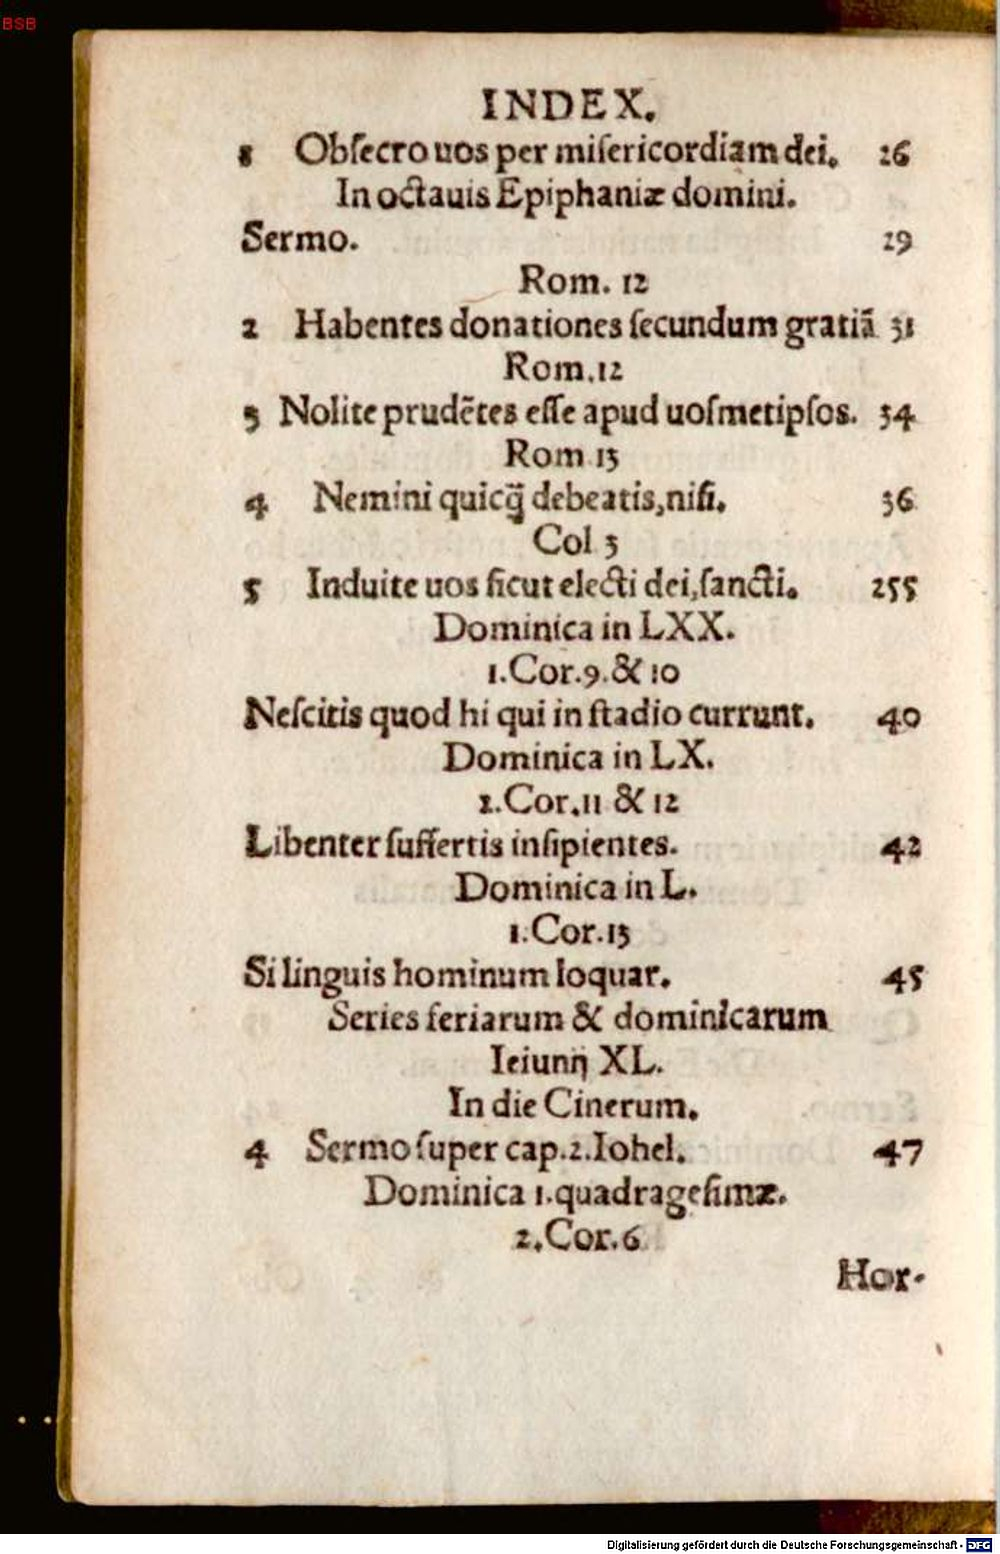 BSB
INDEX.
1 Obſecro uos per miſericordiam dei. 26
In octauis Epiphaniæ domini.
Sermo. 29
Rom. 12
2 Habentes donationes ſecundum gratiā 31
Rom. 12
3 Nolite prudētes eſſe apud uoſmetipſos. 34
Rom 13
4 Nemini quicq̄ debeatis, niſi. 36
Col 3
5 Induite uos ſicut electi dei, ſancti. 255
Dominica in LXX.
1. Cor. 9. & 10
Neſcitis quod hi qui in ſtadio currunt. 40
Dominica in LX.
1. Cor. 11 & 12
Libenter ſuffertis inſipientes. 42
Dominica in L.
1. Cor. 13
Si linguis hominum loquar. 45
Series feriarum & dominicarum
Ieiunij XL.
In die Cinerum.
4 Sermo ſuper cap. 2. Iohel. 47
Dominica 1. quadrageſimæ.
2. Cor. 6
Hor-
Digitalisierung gefördert durch die Deutsche Forschungsgemeinschaft - DFG